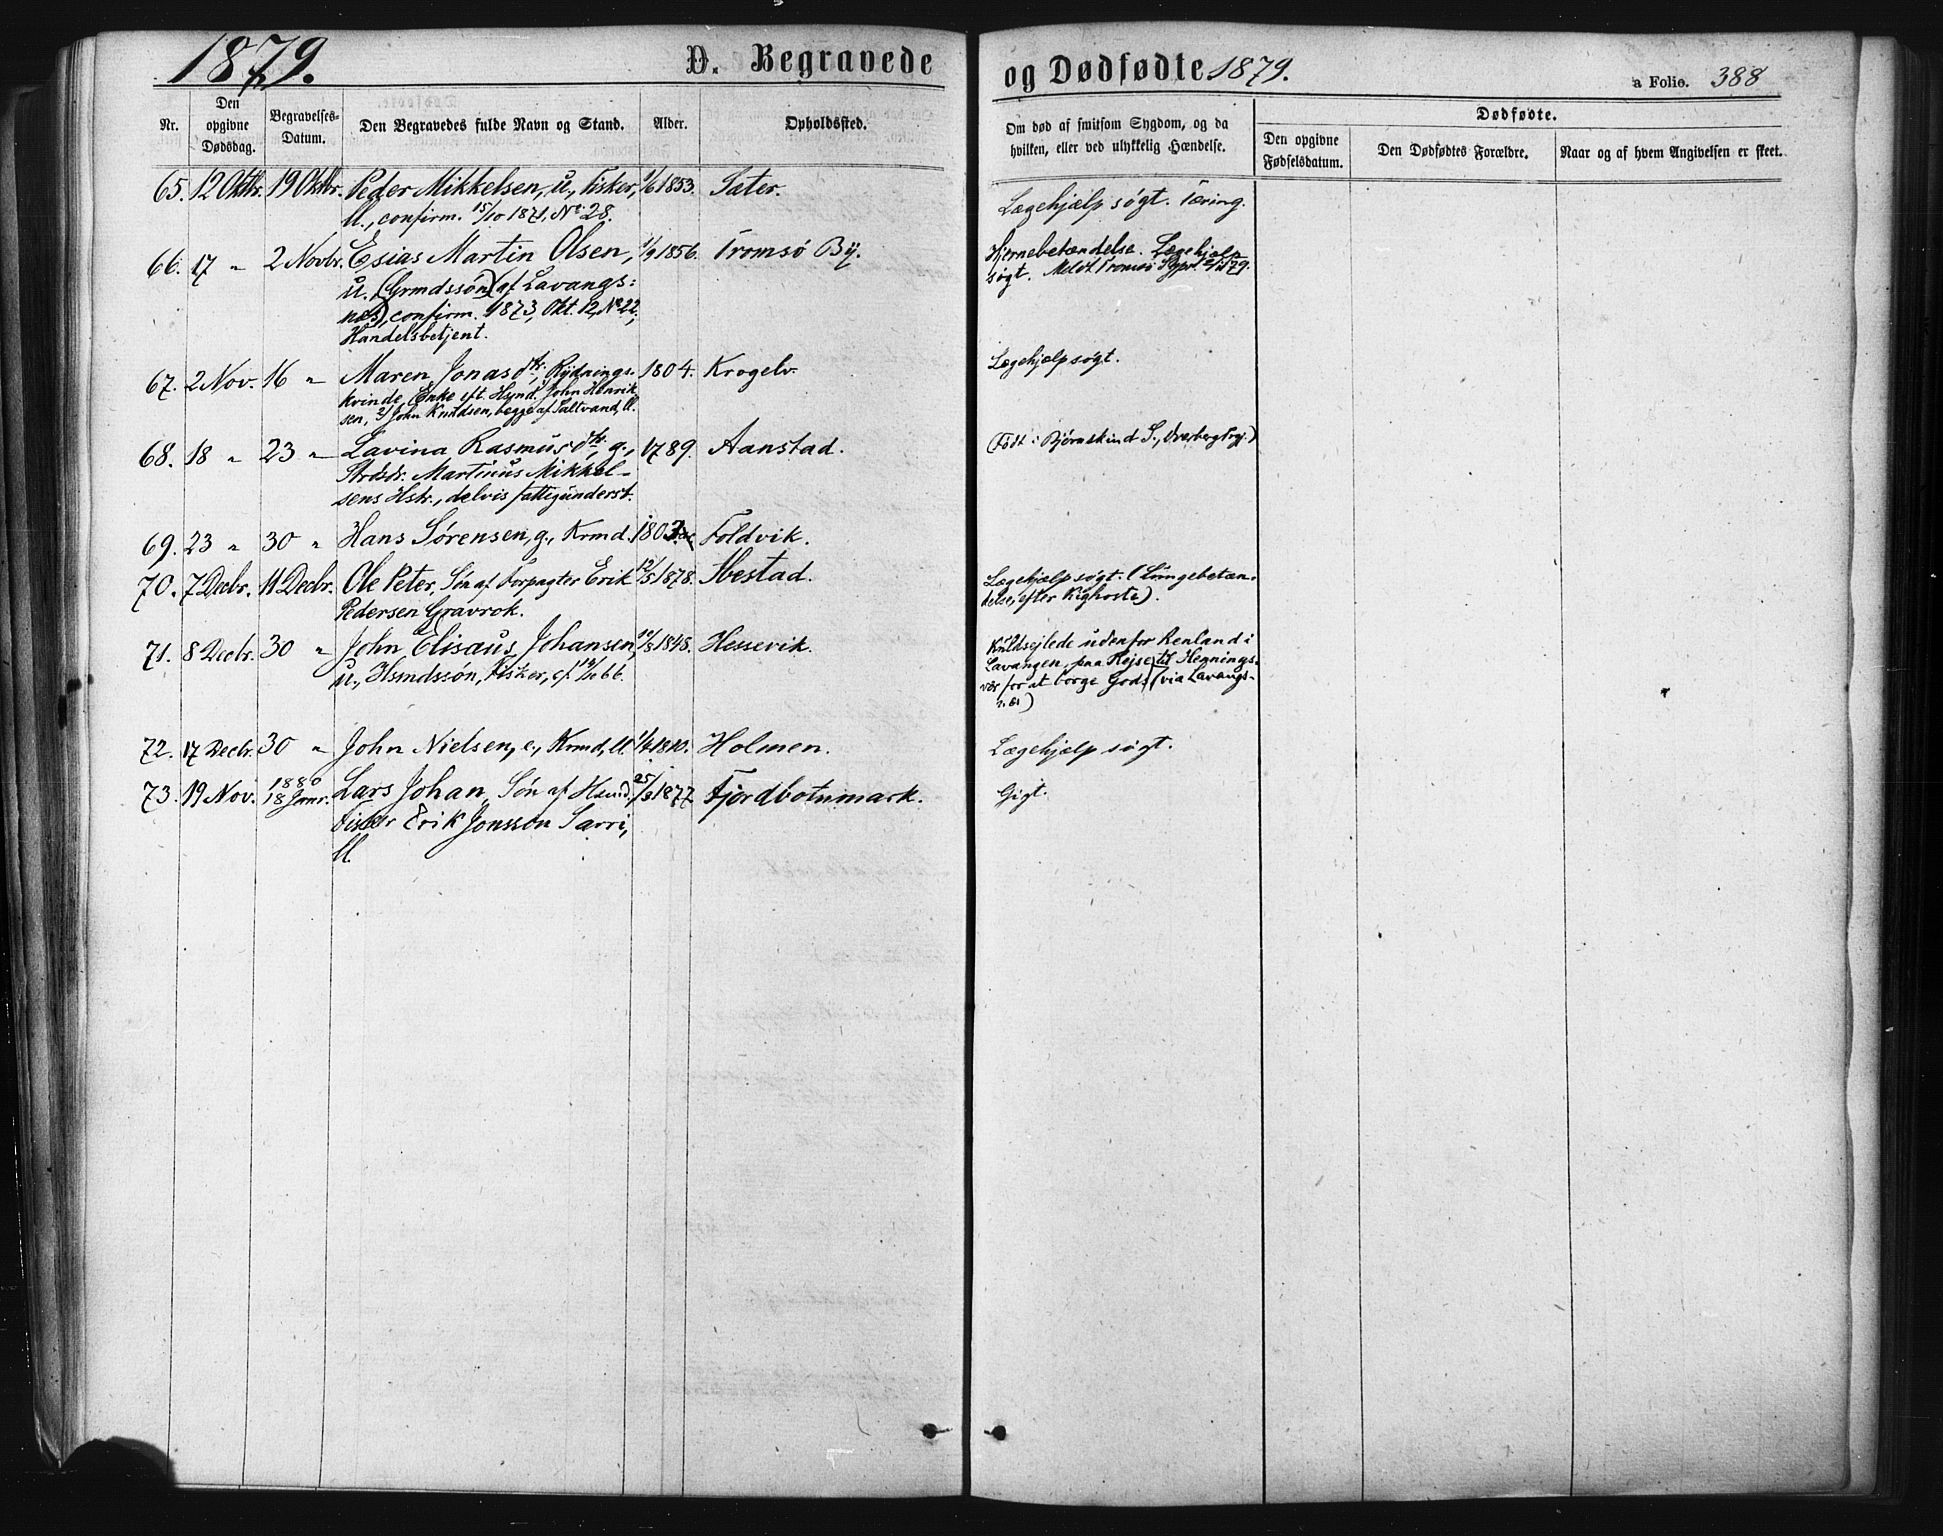 1879.
D. Begravede
og Dødfødte 1879.
a Folio. 388
Nr.
Den opgivne Dødsdag.
Begravelses-Datum.
Den Begravedes fulde Navn og Stand.
Alder.
Opholdssted.
Om død af smitsom Sygdom, og da hvilken, eller ved ulykkelig Hændelse.
Dødfødte.
Den opgivne Fødselsdatum.
Den Dødfødtes Forældre.
Naar og af hvem Angivelsen er skeet.
65. 12 Oktbr. 19 Oktbr. Peder Mikkelsen, u., Fisker, 1/6 1853. Sæter. Lægehjælp søgt. Tæring.
ll., confirm. 15/10 1871, No 28.
66. 17 " 2 Novbr. Esias Martin Olsen, 1/9 1856. Tromsø By. Hjernebetændelse. Lægehjælp
u. (Grmdssøn) af Lavangs- søgt. Meldt Tromsø
næs), confirm. 1873, Okt. 12, No 22,
Handelsbetjent.
67. 2 Nov. 16 " Maren Jonasdtr., Rydnings- 1804. Krogelv. Lægehjælp søgt.
kvinde, Enke eft. Hsmd. John Henrik
sen, 2/ John Knudsen, begge af Saltvand, ll.
68. 18 " 23 " Lavina Rasmusdtr., g., 1789. Aanstad. (Født: Bjørnskind S.,
Martinus Mikkel-
sens Hstr., delvis fattigunderst.
69. 23 " 30 " Hans Sørensen, g., Krmd. Foldvik.
70. 7 Decbr. 11 Decbr. Ole Peter, Søn af Forpagter Erik 12/5 1878. Ibestad. Lægehjælp søgt. (Lungebetæn-
Pedersen Gravrok. delse, efter Kighoste).
71. 8 Decbr. 30 " John Elisæus Johansen, 1848. Hessevik. Kuldsejlede udenfor Renland i
u., Hsmdssøn, Fisker, cf. 66. Lavangen, paa Rejse til Hennings-
vær for at borge Gods (via Lavangs-
næs)
72. 17 Decbr. 30 " John Nielsen, e., Krmd, ll. 1810. Holmen. Lægehjælp søgt.
73. 19 Nov. 1880 18 Janr. Lars Johan, Søn af Hsmd. 25/8 1877 Fjordbotnmark. Gigt.
Fisker Erik Jonsson Sarri,
ll.